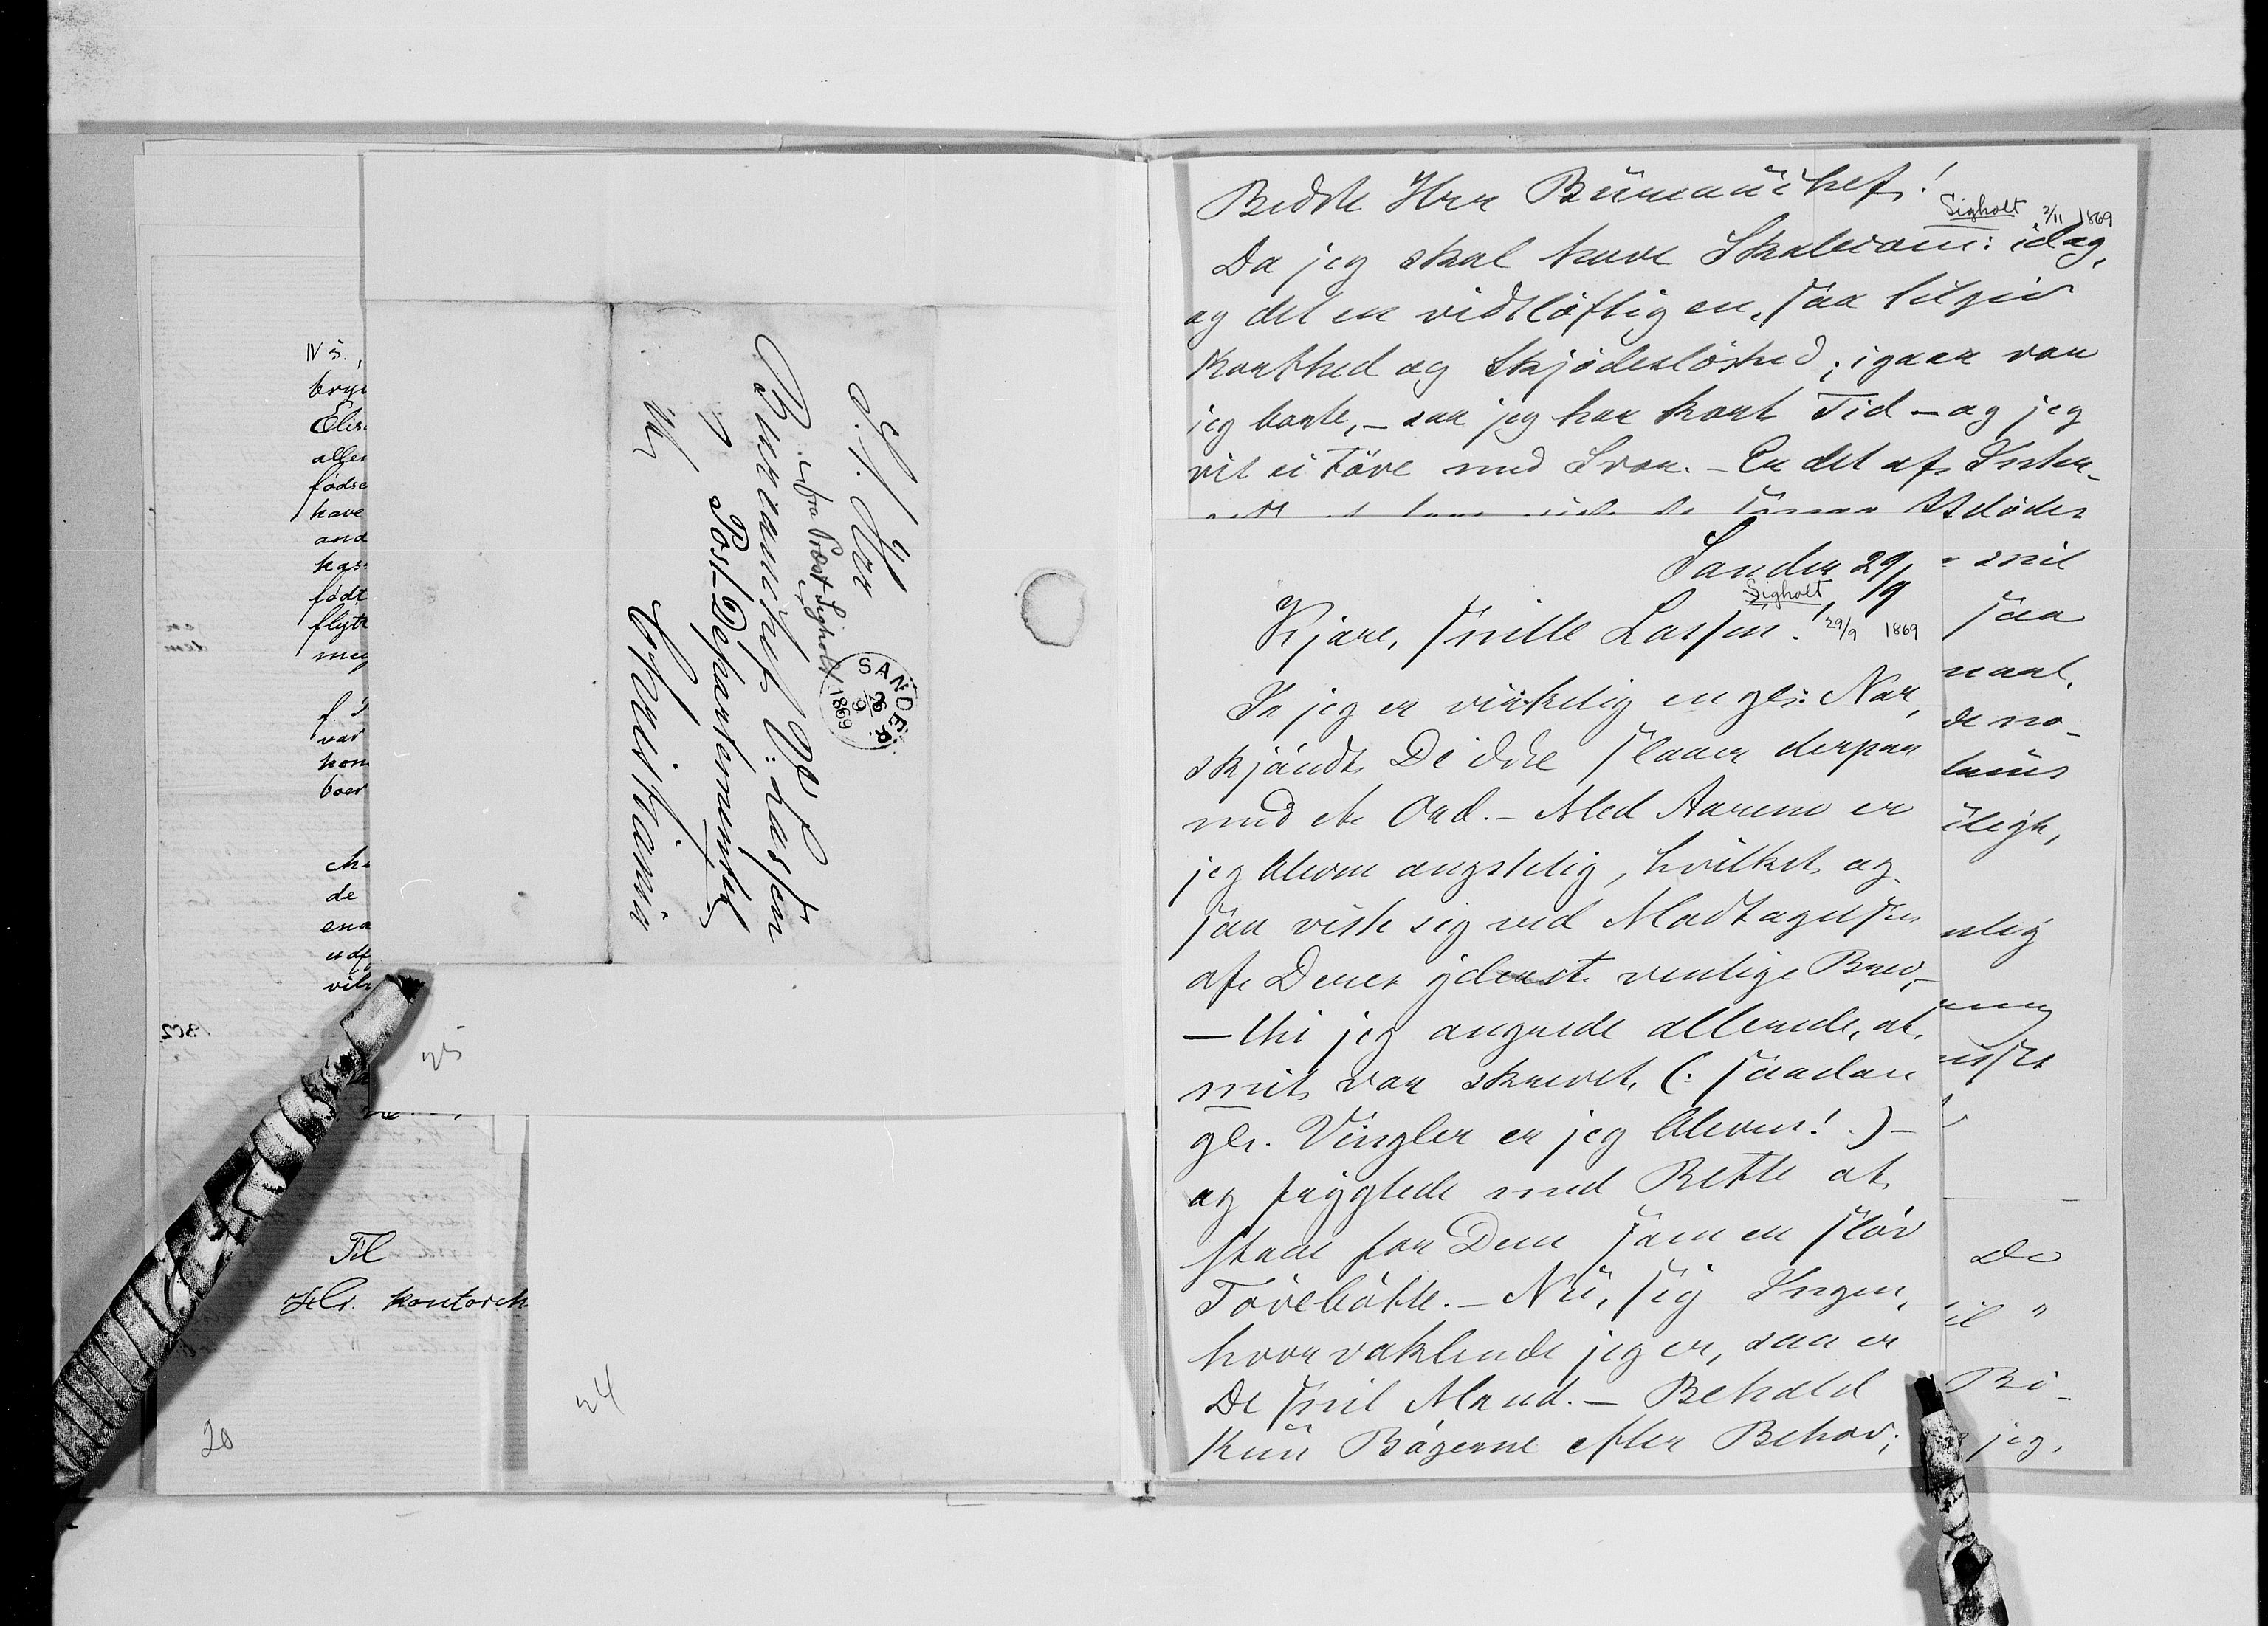 Nš.,
Elis
alle
fødse
have
and
has
født
flytt
meg
var
kom
boer
de
ena
udf
vil
1802
Til
Hr. kontorch
20
25
24
S. T. Hrr
Bureauchef W: Lassen
fra Præst Sigholt
Post-Departementet
Christiania
SANDER
26
9
1869
Bedste Hrr Bureauchef!
Sigholt 2/11 1869
Da jeg skal have Skolecom: idag,
og det en vidtløftig en, saa tilgiv
Korthed og Skjødesløshed; igaar var
jeg borte, – saa jeg har kort Tid – og jeg
vil ei tøve med Svar. – En del af Inter-
Sander 29/9
Sigholt
29/9 1869
Kjære, snille Lassen!
Ja jeg er virkelig en gl: Nar,
skjøndt De ikke slaaer derpaa
med et Ord. – Med Aarene er
jeg bleven ængstelig, hvilket og-
saa viste sig ved Modtagelsen
af Deres yderst venlige Brev,–
– thi jeg angrede allerede, at
mit var skrevet, (: saadan
gl. Vingler er jeg bleven! :) –
og frygtede med Rette at
staae for Dem som en sløv
Tøvebøtte. – Nu, sig Ingen,
hvor vaklende jeg er, saa er
De snil Mand. – Behold
Kun Bøgerne efter Behov;
snil
saa
naal.
de no-
nlig
De
il "
Bi-
jeg,